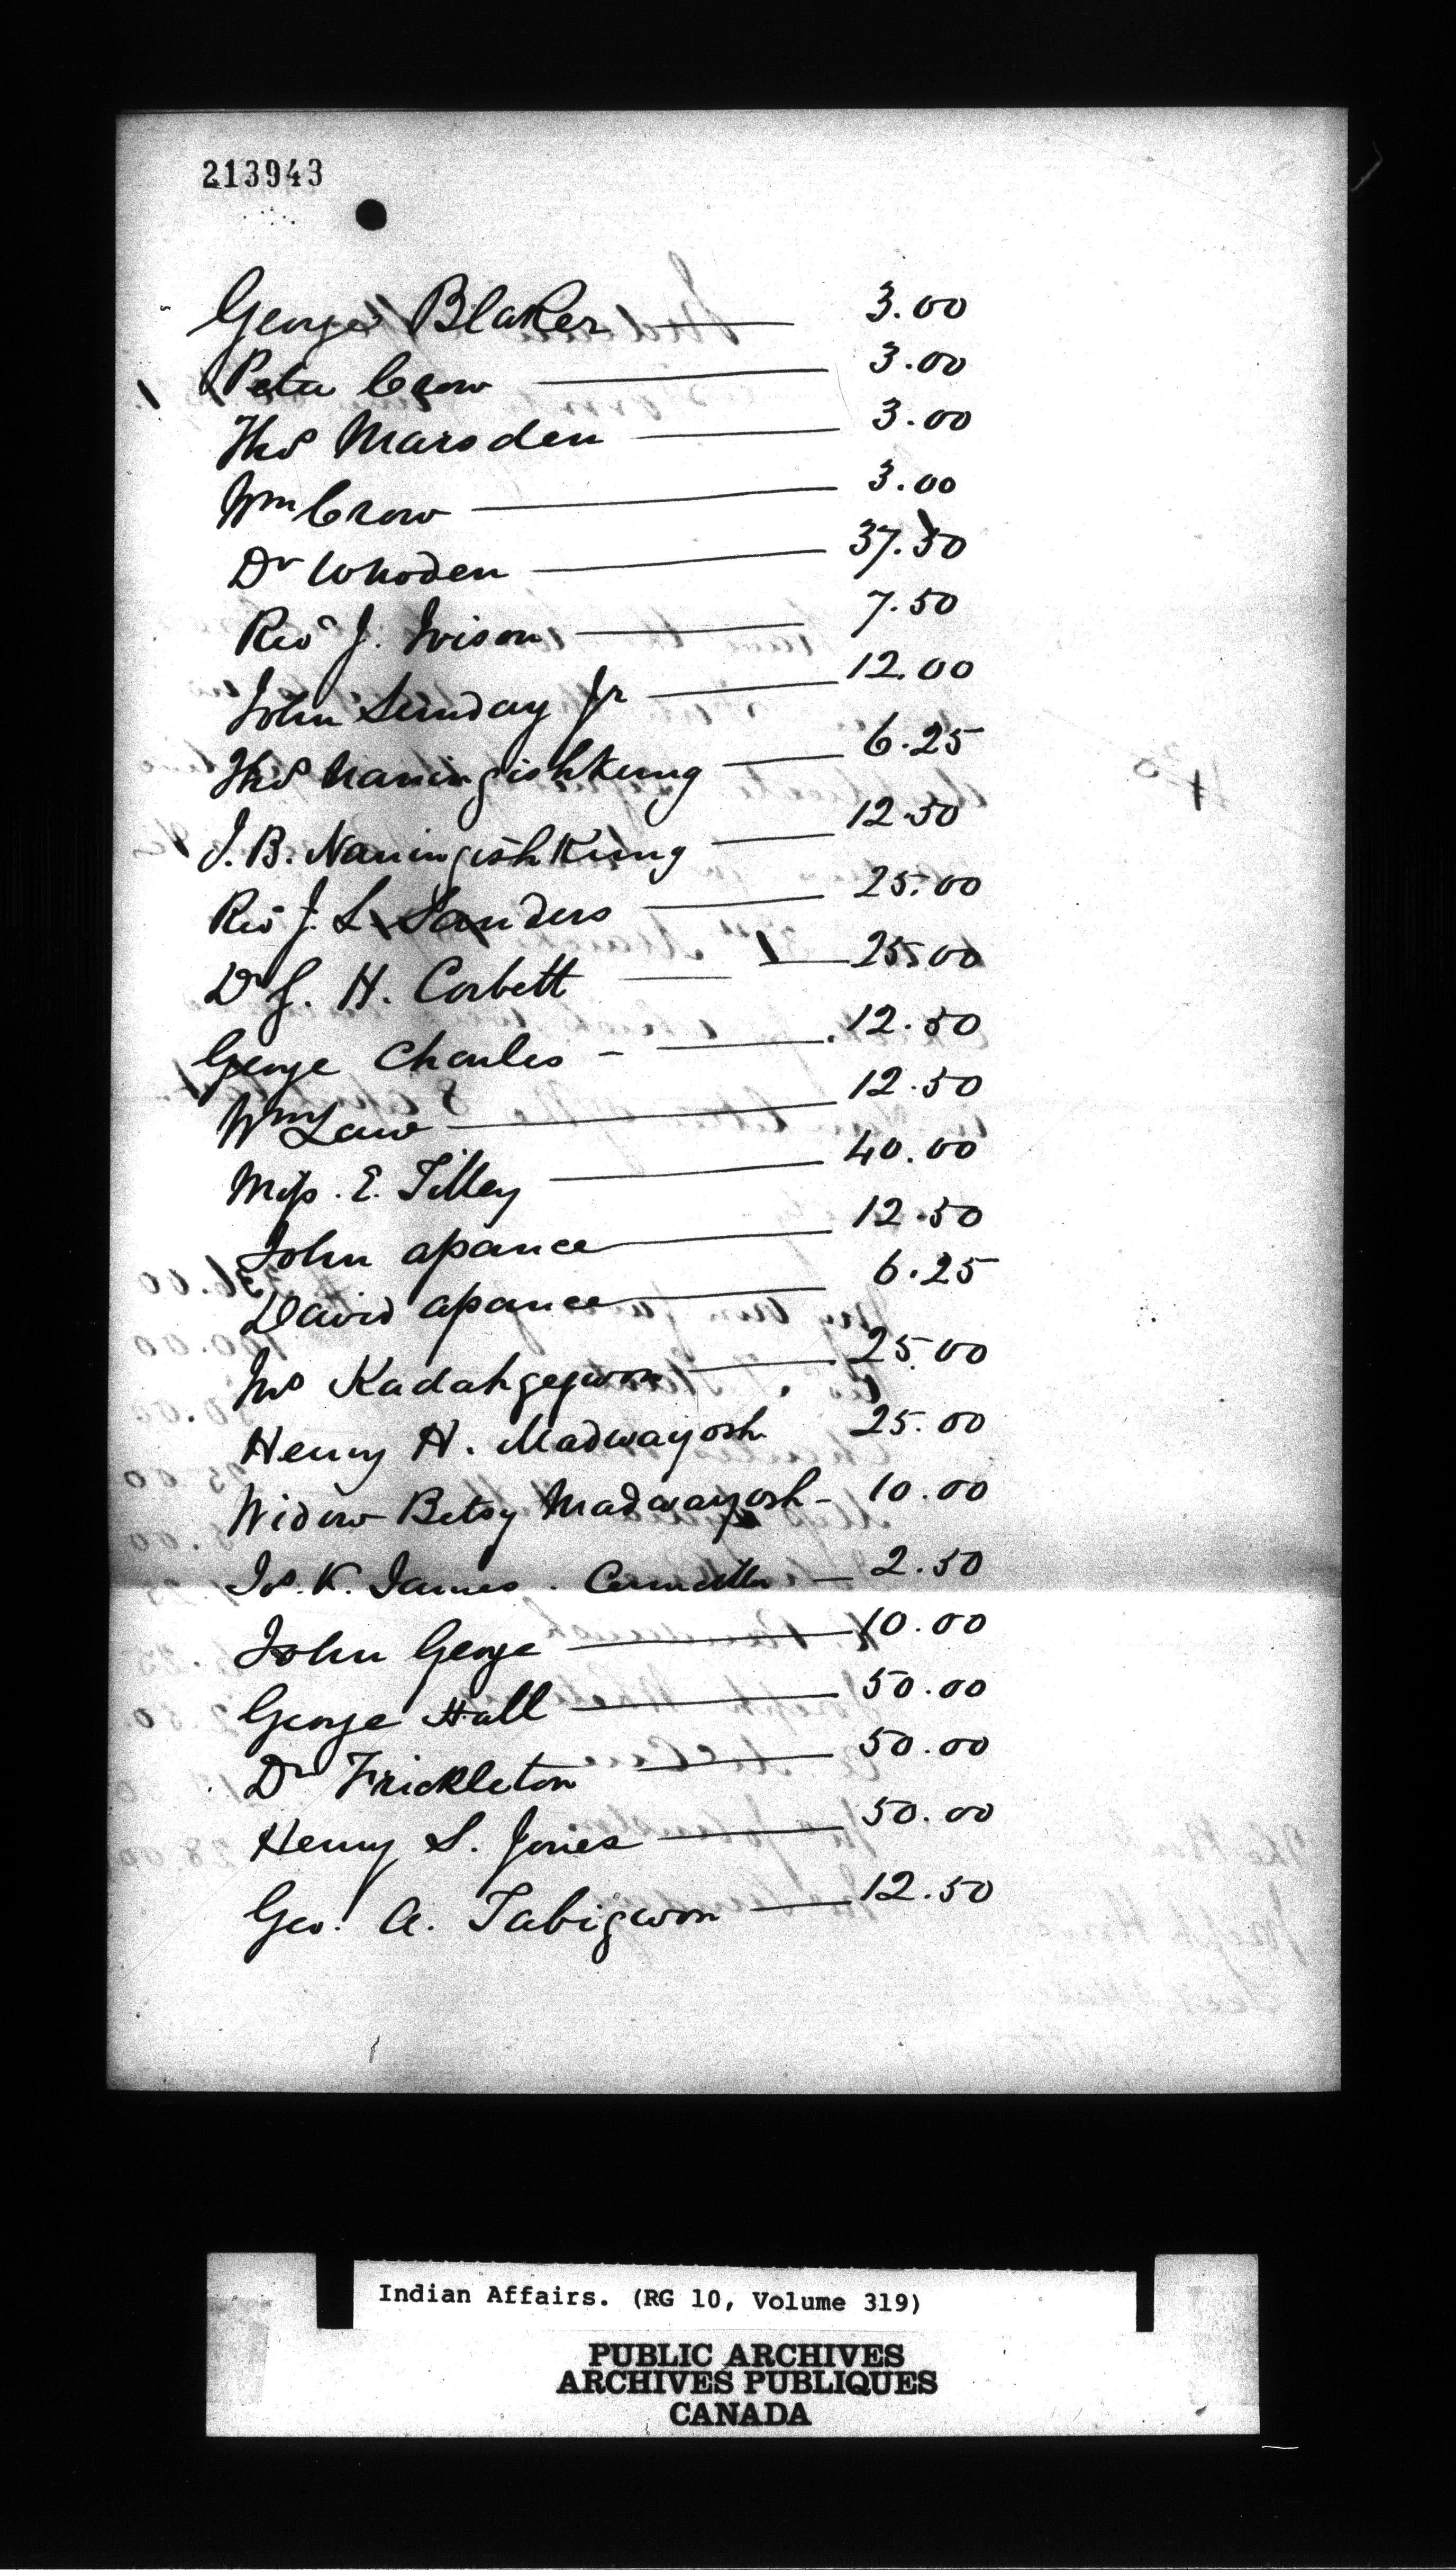 213943
George Blaker 3.00
Peter Crow 3.00
Thos Marsden 3.00
Wm Crow 3.00
Dr Whoden 37.50
Revd J. Ivison 7.50
John Sunday Jr 12.00
Thos Naningishkung 6.25
J. B. Naningishkung 12.50
Rev J. L. Sanders 25.00
Dr J. H. Corbett 25.00
George Charles 12.50
Wm Law 12.50
Miss. E. Tilley 40.00
John apance 12.50
David apance 6.25
Kadahgegwon 25.00
Henry H. Madwayosh 25.00
Widow Betsy Madwayosh 10.00
K. James 2.50
John George 10.00
George Hall 50.00
Dr Frickleton 50.00
Henry S. Jones 50.00
Geo. A. Tabigwon 12.50
Indian Affairs. (RG 10, Volume 319)
PUBLIC ARCHIVES
ARCHIVES PUBLIQUES
CANADA